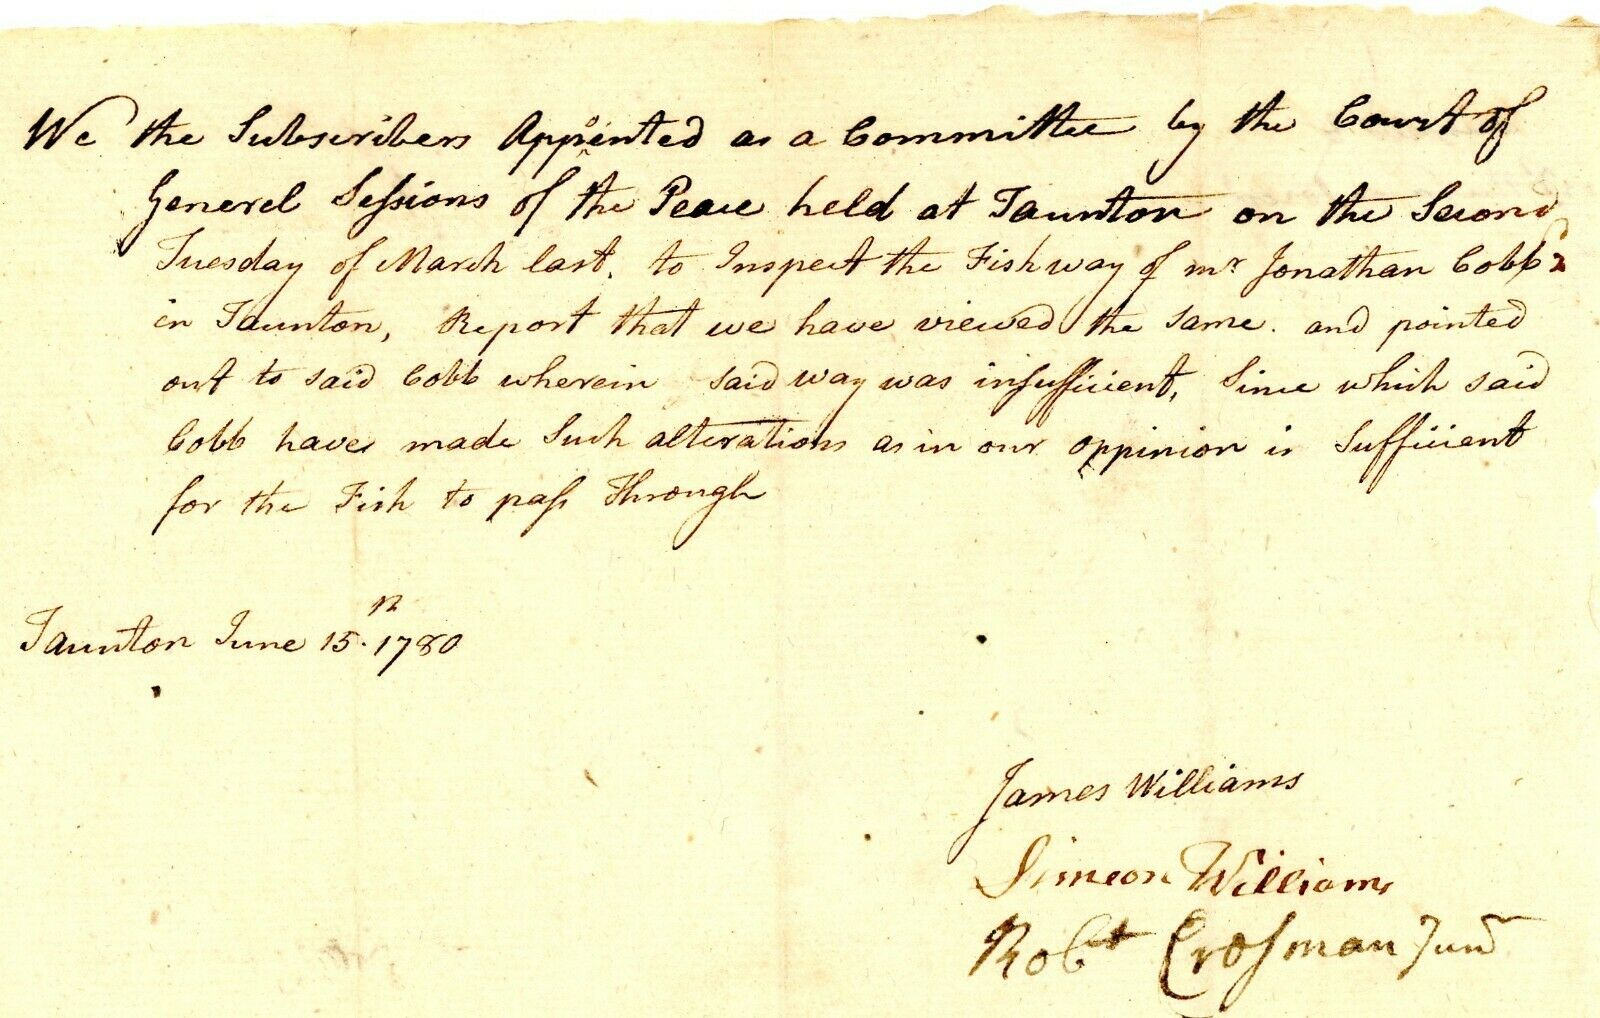 We the Subscribers Appointed as a Committee by the Court of
Generel Sessions of the Peace held at Taunton on the Second
Tuesday of March last, to Inspect the Fishway of mr Jonathan Cobb
in Taunton, Report that we have viewed the same. and pointed
out to said Cobb wherein said way was insufficient, Since which said
Cobb have made Such alterations as in our oppinion is Sufficient
for the Fish to pass Through
Taunton June 15. 1780
James Williams
Simeon Williams
Robt Crosman Junr